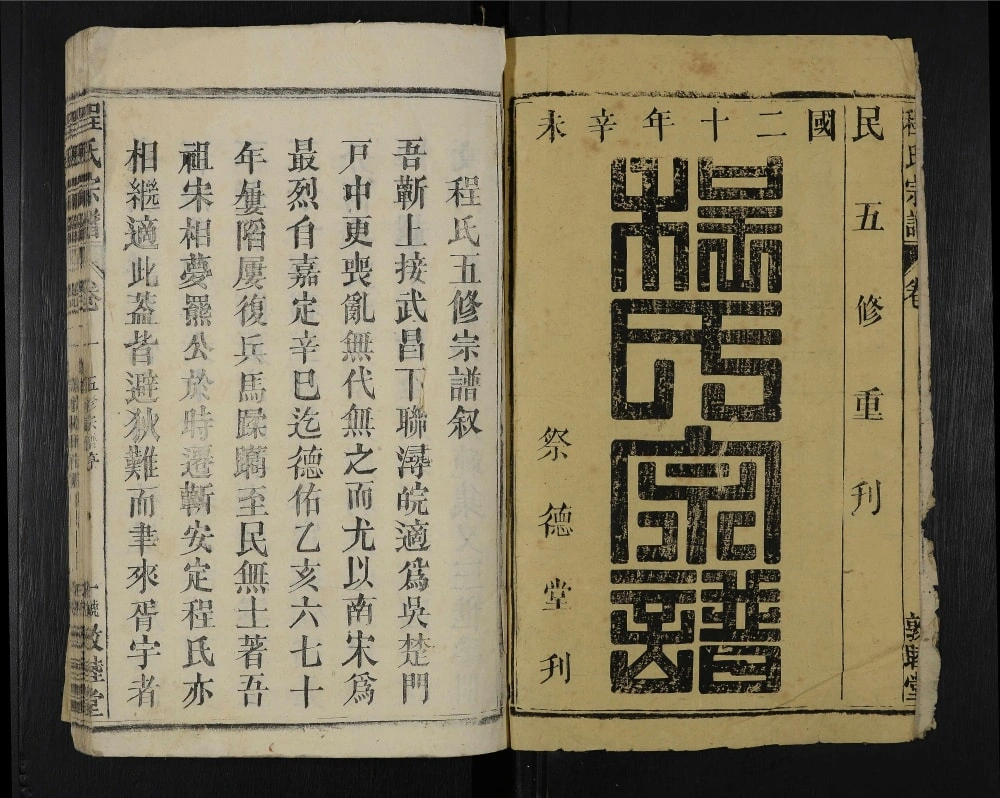 民國二十年辛未
五修重刊
程氏宗譜
祭德堂刊
程氏宗譜
卷
敦睦堂
程氏五修宗譜叙
吾蘄上接武昌下聯潯皖適為吳楚門
戸中更喪亂無代無之而尤以南宋為
最烈自嘉定辛巳迄德佑乙亥六七十
年蔞䧟屢復兵馬蹂躪至民無土著吾
祖宋相夢羆公於時遷蘄安定程氏亦
相繼適此葢皆避狄難而聿來胥宇者
程氏宗譜
卷一
敦睦堂